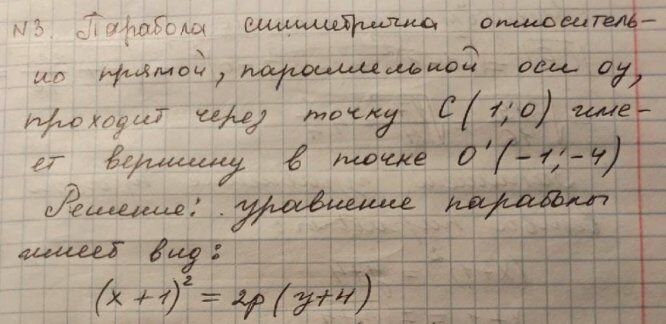 №3. Парабола симметрична относитель-
но прямой, параллельной оси оу,
проходит через точку С(1;0) име-
ет вершину в точке О'(-1;-4)
Решение: уравнение параболы
имеет вид:
(x+1)² = 2p(y+4)